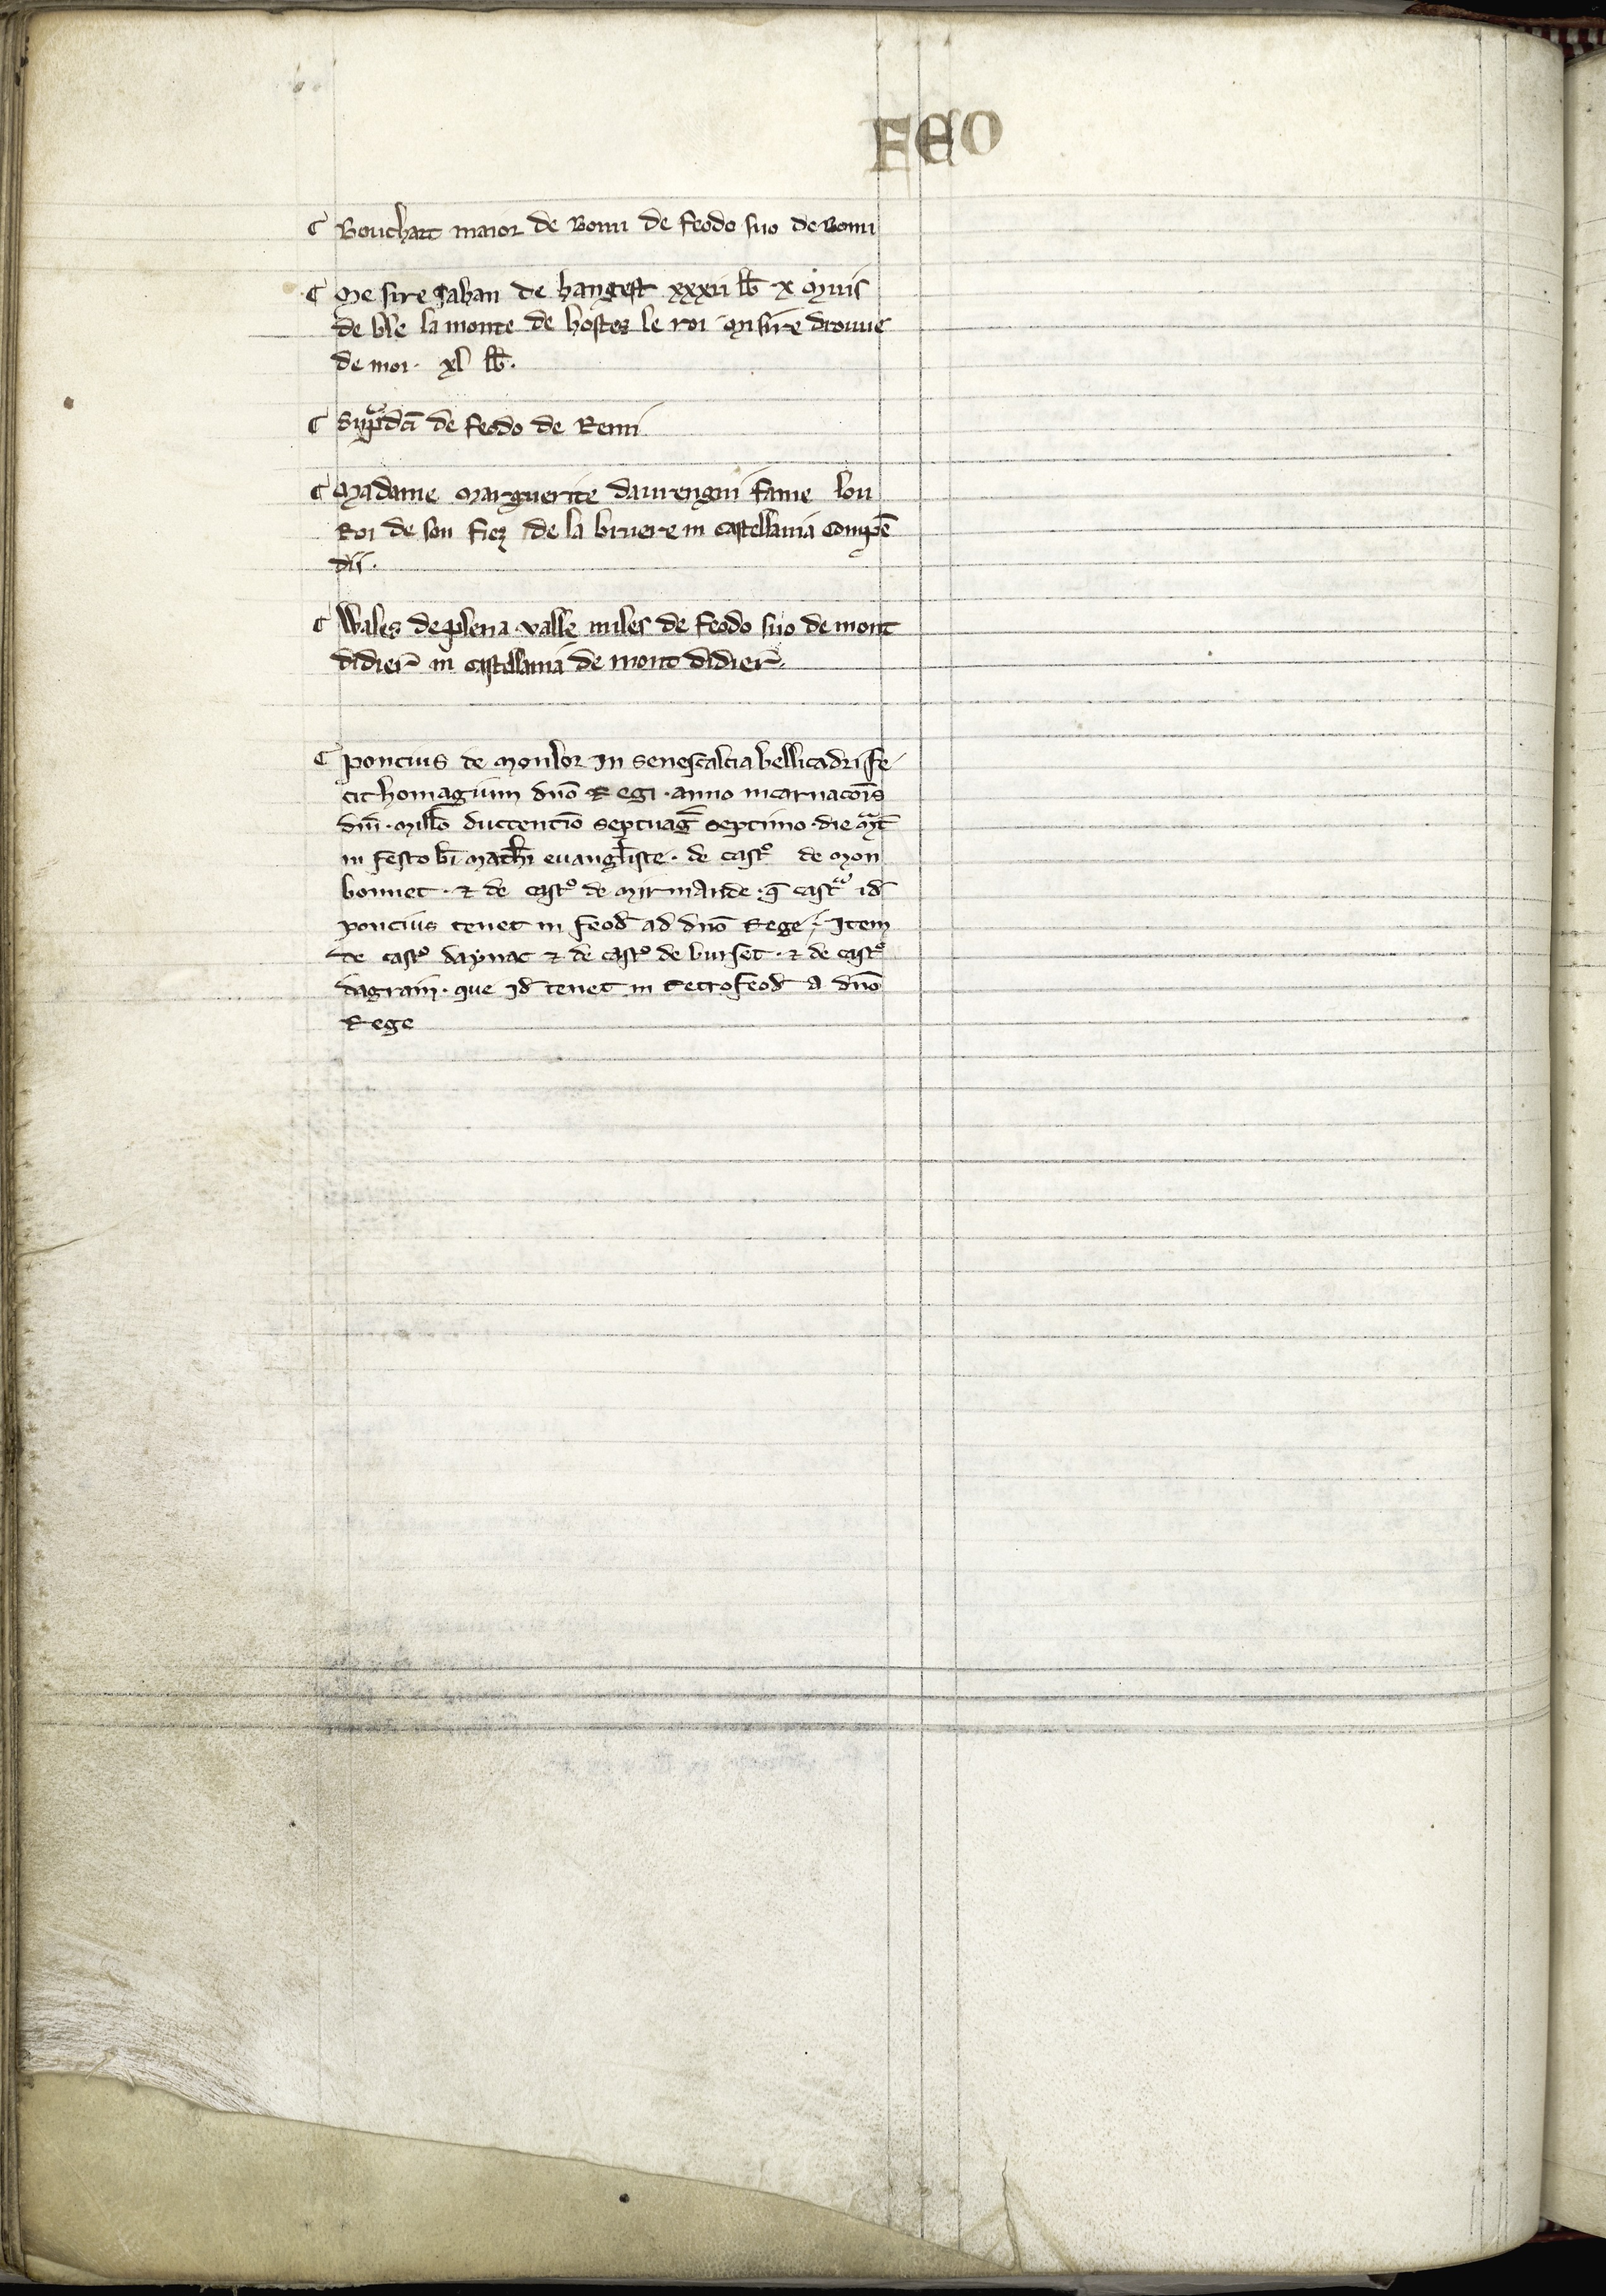 FEO
⸿ Bouchart maior de Bomi de feodo suo de Bomi
⸿ Me sire Jahan de hangest xxxii lb̄ x muis
de ble la monte de hostez le roi misire drouue
de moi · xl lb̄ ·
⸿ Sup̄ᵃdc̄i de feodo de Remi
⸿ Madame Marguerite fame lou
Roi de son fiez de la bruere in castellania Compē
dii ·
⸿ Wales de plena valle miles de feodo suo de mont
didier̄ in castellania de mont didier̄ ·
⸿ poncius de Monlor In senescalcia bellicadri fe
cit homagium dn̄o Regi · anno incarnacōis
dn̄i · mill̄o ductentīo septuaḡ septimo · die
in festo bī Math̄i euanḡliste · de castº de Mon
bonnet · ⁊ de castº de Mirmande · q̄ castᵃ id̄
poncius tenet in feod̄ ad dn̄o Rege · Item
de castº daynac ⁊ de castº de burset · ⁊ de castº
dagrain · que Id̄ tenet in Retrofeod̄ a dn̄o
Rege